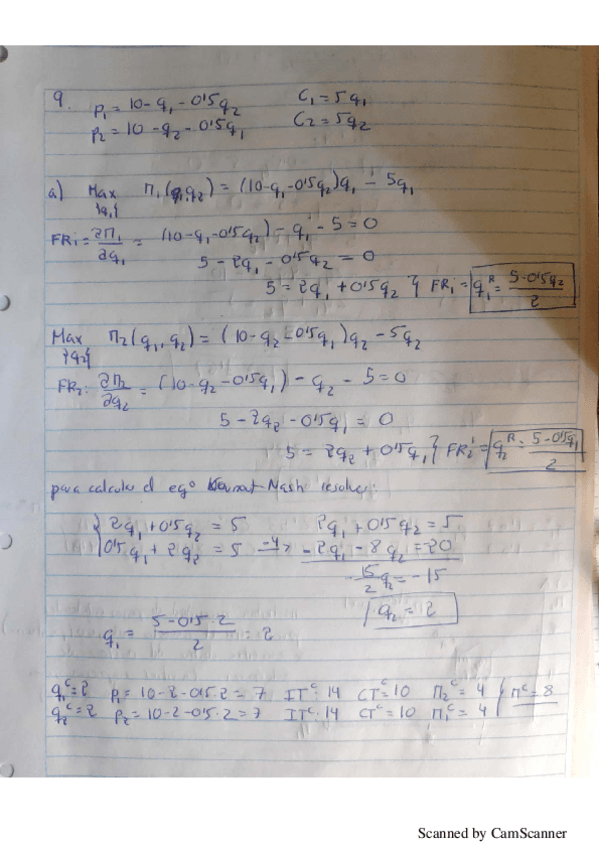 9. p₁ = 10 - q₁ - 0'5q₂ C₁ = 5q₁
p₂ = 10 - q₂ - 0'5q₁ C₂ = 5q₂
a) Max Π₁(q₁,q₂) = (10-q₁-0'5q₂)q₁ - 5q₁
{q₁}
FR₁ = ∂Π₁/∂q₁ = (10-q₁-0'5q₂) - q₁ - 5 = 0
5 - 2q₁ - 0'5q₂ = 0
5 = 2q₁ + 0'5q₂ } FR₁ = q₁ᴿ = (5-0'5q₂)/2
Max Π₂(q₁,q₂) = (10-q₂-0'5q₁)q₂ - 5q₂
{q₂}
FR₂: ∂Π₂/∂q₂ = (10-q₂-0'5q₁) - q₂ - 5 = 0
5 - 2q₂ - 0'5q₁ = 0
5 = 2q₂ + 0'5q₁ } FR₂ = q₂ᴿ = (5-0'5q₁)/2
para calcular el eqº Cournot-Nash resolver:
{ 2q₁ + 0'5q₂ = 5 2q₁ + 0'5q₂ = 5
0'5q₁ + 2q₂ = 5 -4> -2q₁ - 8q₂ = -20
-15/2 q₂ = -15
q₂ = 2
q₁ = (5-0'5·2)/2 = 2
q₁ᶜ = 2 p₁ = 10-2-0'5·2 = 7 ITᶜ = 14 CTᶜ = 10 Π₂ᶜ = 4 } Πᶜ = 8
q₂ᶜ = 2 p₂ = 10-2-0'5·2 = 7 ITᶜ = 14 CTᶜ = 10 Π₁ᶜ = 4
Scanned by CamScanner